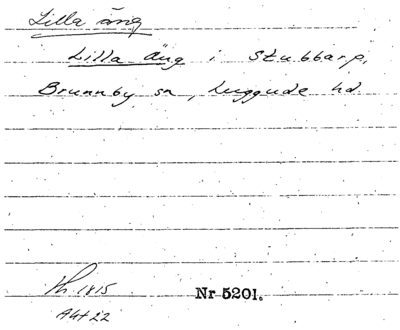 Lilla äng
Lilla Äng i Stubbarp,
Brunnby sn, Luggude hd.
1815
Nr 5201.
Akt 22